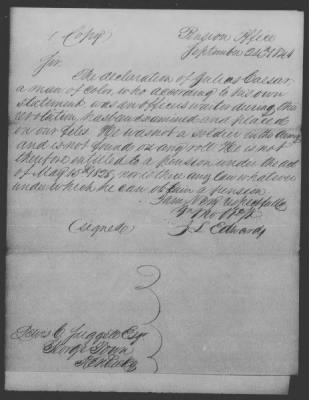 (Copy) Pension Office
September 24th 1844
Sir,
The declaration of Julius Caesar,
a man of Color, who according to his own
statement was an officers waiter during the
revolution, has been examined and placed
on our files. He was not a soldier in the Army
and is not found on any roll. He is not
therefore entitled to a pension under the act
of May 15th 1828, nor is there any law whatever
under which he can obtain a pension
I am Very respectfully
(signed) J L Edwards
Esq
George Town
Kentucky